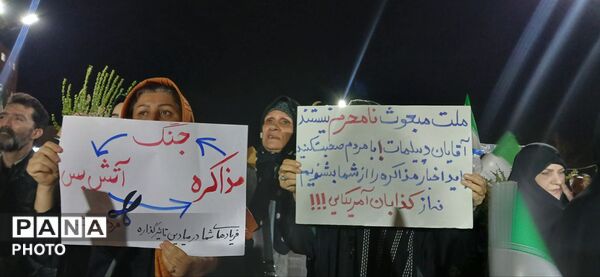 جنگ
مذاکره
آتش بس
فریادهای شما در میادین تاثیرگذاره
ملت مبعوث نامحرم نیستند
آقایان دیپلمات با مردم صحبت کنید
اخبار مذاکره را از شما بشنویم
نه از کذابان آمریکایی !!!
PANA
PHOTO